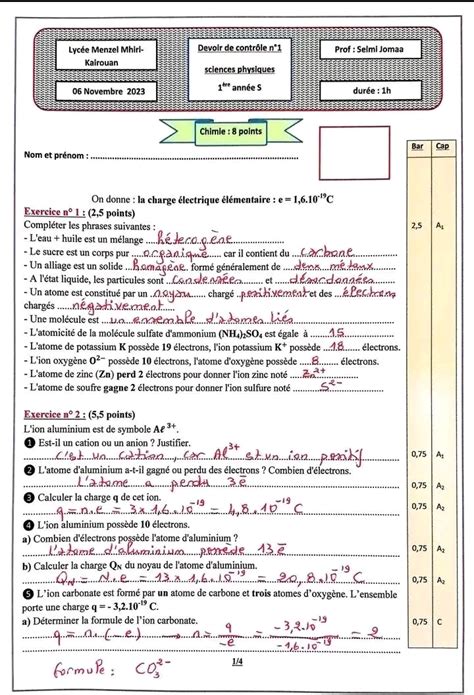 Lycée Menzel Mhiri-
Kairouan
06 Novembre 2023
Devoir de contrôle n°1
sciences physiques
1ère année S
Prof : Selmi Jomaa
durée : 1h
Chimie : 8 points
Bar Cap
Nom et prénom :
On donne : la charge électrique élémentaire : e = 1,6.10⁻¹⁹C
Exercice n° 1 : (2,5 points)
Compléter les phrases suivantes : 2,5 A₁
- L'eau + huile est un mélange hétérogène
- Le sucre est un corps pur organique car il contient du carbone
- Un alliage est un solide homogène formé généralement de deux métaux
- A l'état liquide, les particules sont condensées et désordonnées
- Un atome est constitué par un noyau chargé positivement et des électrons
chargés négativement
- Une molécule est un ensemble d'atomes liés
- L'atomicité de la molécule sulfate d'ammonium (NH₄)₂SO₄ est égale à 15
- L'atome de potassium K possède 19 électrons, l'ion potassium K⁺ possède 18 électrons.
- L'ion oxygène O²⁻ possède 10 électrons, l'atome d'oxygène possède 8 électrons.
- L'atome de zinc (Zn) perd 2 électrons pour donner l'ion zinc noté Zn²⁺
- L'atome de soufre gagne 2 électrons pour donner l'ion sulfure noté S²⁻
Exercice n° 2 : (5,5 points)
L'ion aluminium est de symbole Aℓ³⁺.
❶ Est-il un cation ou un anion ? Justifier.
c'est un cation, car Al³⁺ est un ion positif 0,75 A₁
❷ L'atome d'aluminium a-t-il gagné ou perdu des électrons ? Combien d'électrons.
L'atome a perdu 3e⁻ 0,75 A₂
❸ Calculer la charge q de cet ion.
q = n.e = 3 x 1,6.10⁻¹⁹ = 4,8.10⁻¹⁹ C 0,75 A₂
❹ L'ion aluminium possède 10 électrons.
a) Combien d'électrons possède l'atome d'aluminium ?
L'atome d'aluminium possède 13e⁻ 0,75 A₂
b) Calculer la charge Q_N du noyau de l'atome d'aluminium.
Q_N = N.e = 13 x 1,6.10⁻¹⁹ = 20,8.10⁻¹⁹ C 0,75 A₂
❺ L'ion carbonate est formé par un atome de carbone et trois atomes d'oxygène. L'ensemble
porte une charge q = - 3,2.10⁻¹⁹ C.
a) Déterminer la formule de l'ion carbonate. 0,75 C
q = n.(-e) → n = q/-e = -3,2.10⁻¹⁹/-1,6.10⁻¹⁹ = 2
1/4
formule : CO₃²⁻